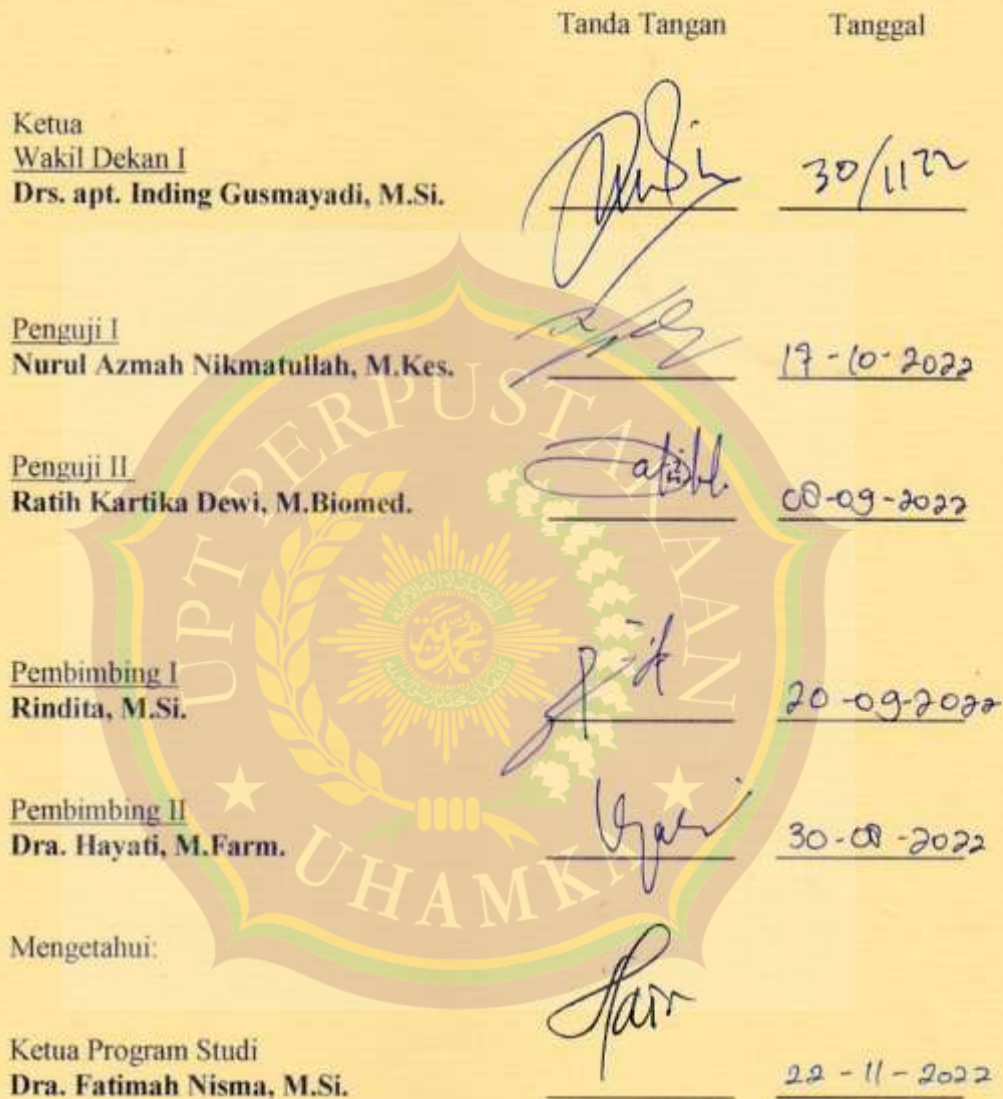 Tanda Tangan Tanggal
Ketua
Wakil Dekan I
Drs. apt. Inding Gusmayadi, M.Si. 30/1122
Penguji I
Nurul Azmah Nikmatullah, M.Kes. 19-10-2022
Penguji II
Ratih Kartika Dewi, M.Biomed. 08-09-2022
Pembimbing I
Rindita, M.Si. 20-09-2022
Pembimbing II
Dra. Hayati, M.Farm. 30-08-2022
Mengetahui:
Ketua Program Studi
Dra. Fatimah Nisma, M.Si. 22-11-2022
UPT PERPUSTAKAAN
UHAMKA